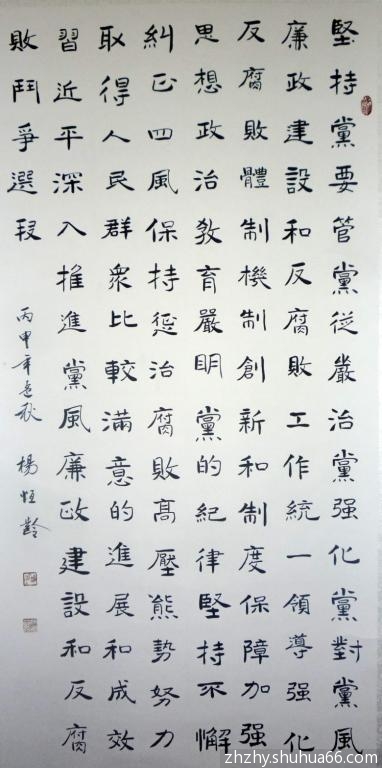 堅持黨要管黨從嚴治黨强化黨對黨風
廉政建設和反腐敗工作統一領導强化
反腐敗體制機制創新和制度保障加强
思想政治教育嚴明黨的紀律堅持不懈
糾正四風保持懲治腐敗高壓態勢努力
取得人民群衆比較滿意的進展和成效
習近平深入推進黨風廉政建設和反腐
敗鬥爭選段
丙申年秋 楊恒齡
zhzhy.shuhua66.com